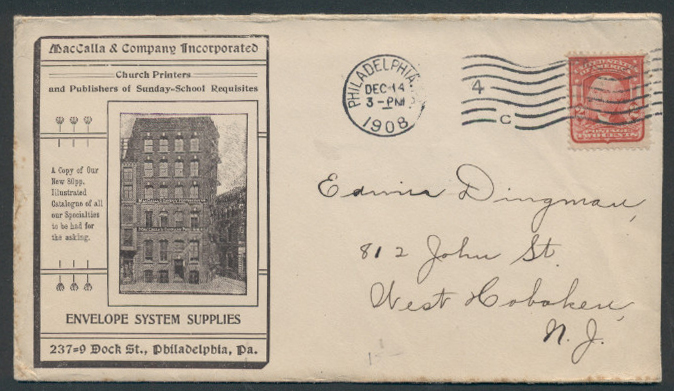 MacCalla & Company Incorporated
Church Printers
and Publishers of Sunday-School Requisites
A Copy of Our
New 80pp.
Illustrated
Catalogue of all
our Specialties
to be had for
the asking.
ENVELOPE SYSTEM SUPPLIES
237=9 Dock St., Philadelphia, Pa.
PHILADELPHIA, PA.
DEC 14
3-PM
1908
4
C
UNITED STATES
OF AMERICA
POSTAGE
TWO CENTS
Edwin Dingman,
812 John St.
West Hoboken,
N. J.